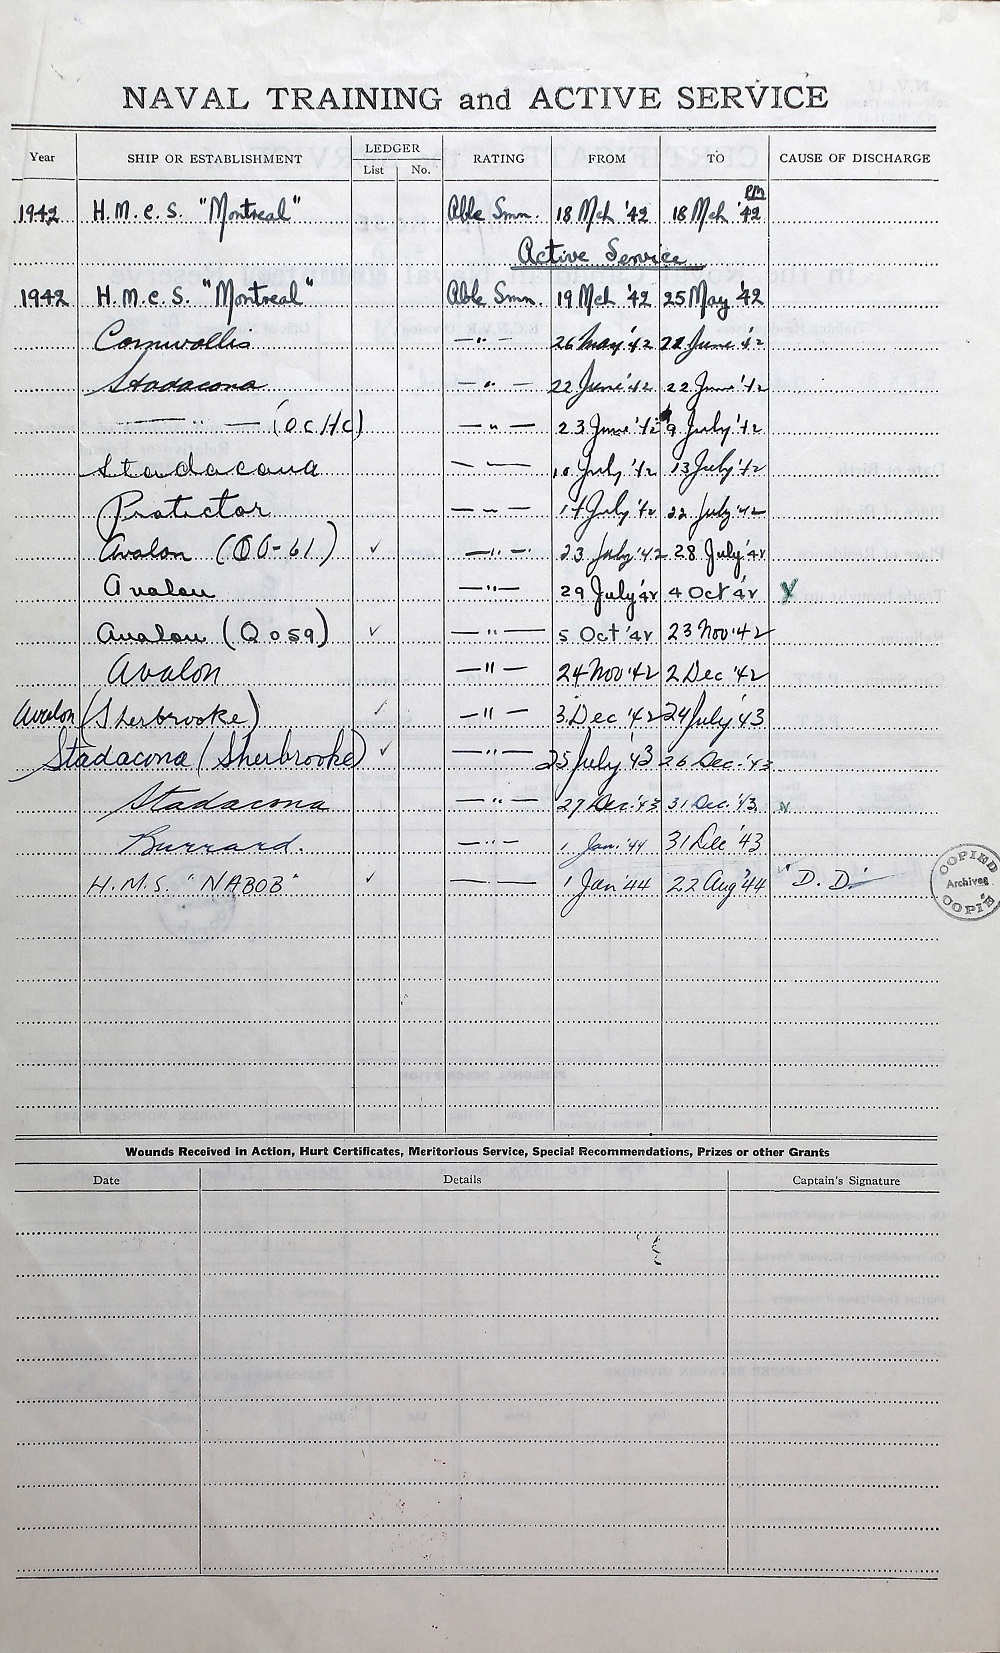 NAVAL TRAINING and ACTIVE SERVICE
Year SHIP OR ESTABLISHMENT LEDGER List No. RATING FROM TO CAUSE OF DISCHARGE
PM
1942 H.M.C.S. "Montreal" Able Smn. 18 Mch '42 18 Mch '42
Active Service
1942 H.M.C.S. "Montreal" Able Smn. 19 Mch '42 25 May '42
Cornwallis —"— 26 May '42 June '42
Stadacona —"— 22 June '42 22 June '42
—"— (OCHC) —"— 23 June '42 9 July '42
Stadacona —"— 10 July '42 13 July '42
Protector —"— 14 July '42 22 July '42
Avalon (QO-61) ✓ —"— 23 July '42 28 July '42
Avalon —"— 29 July '42 4 Oct '42
Avalon (Q059) ✓ —"— 5 Oct '42 23 Nov '42
Avalon —"— 24 Nov '42 2 Dec '42
Avalon (Sherbrooke) ✓ —"— 3 Dec '42 24 July '43
Stadacona (Sherbrooke) ✓ —"— 25 July '43 26 Dec. '43
Stadacona —"— 27 Dec. '43 31 Dec. '43
Burrard. —"— 1 Jan. '44 31 Dec '43
H.M.S. "NABOB" ✓ —"— 1 Jan '44 22 Aug '44 "D.D."
COPIED
Archives
COPIÉ
Wounds Received in Action, Hurt Certificates, Meritorious Service, Special Recommendations, Prizes or other Grants
Date Details Captain's Signature